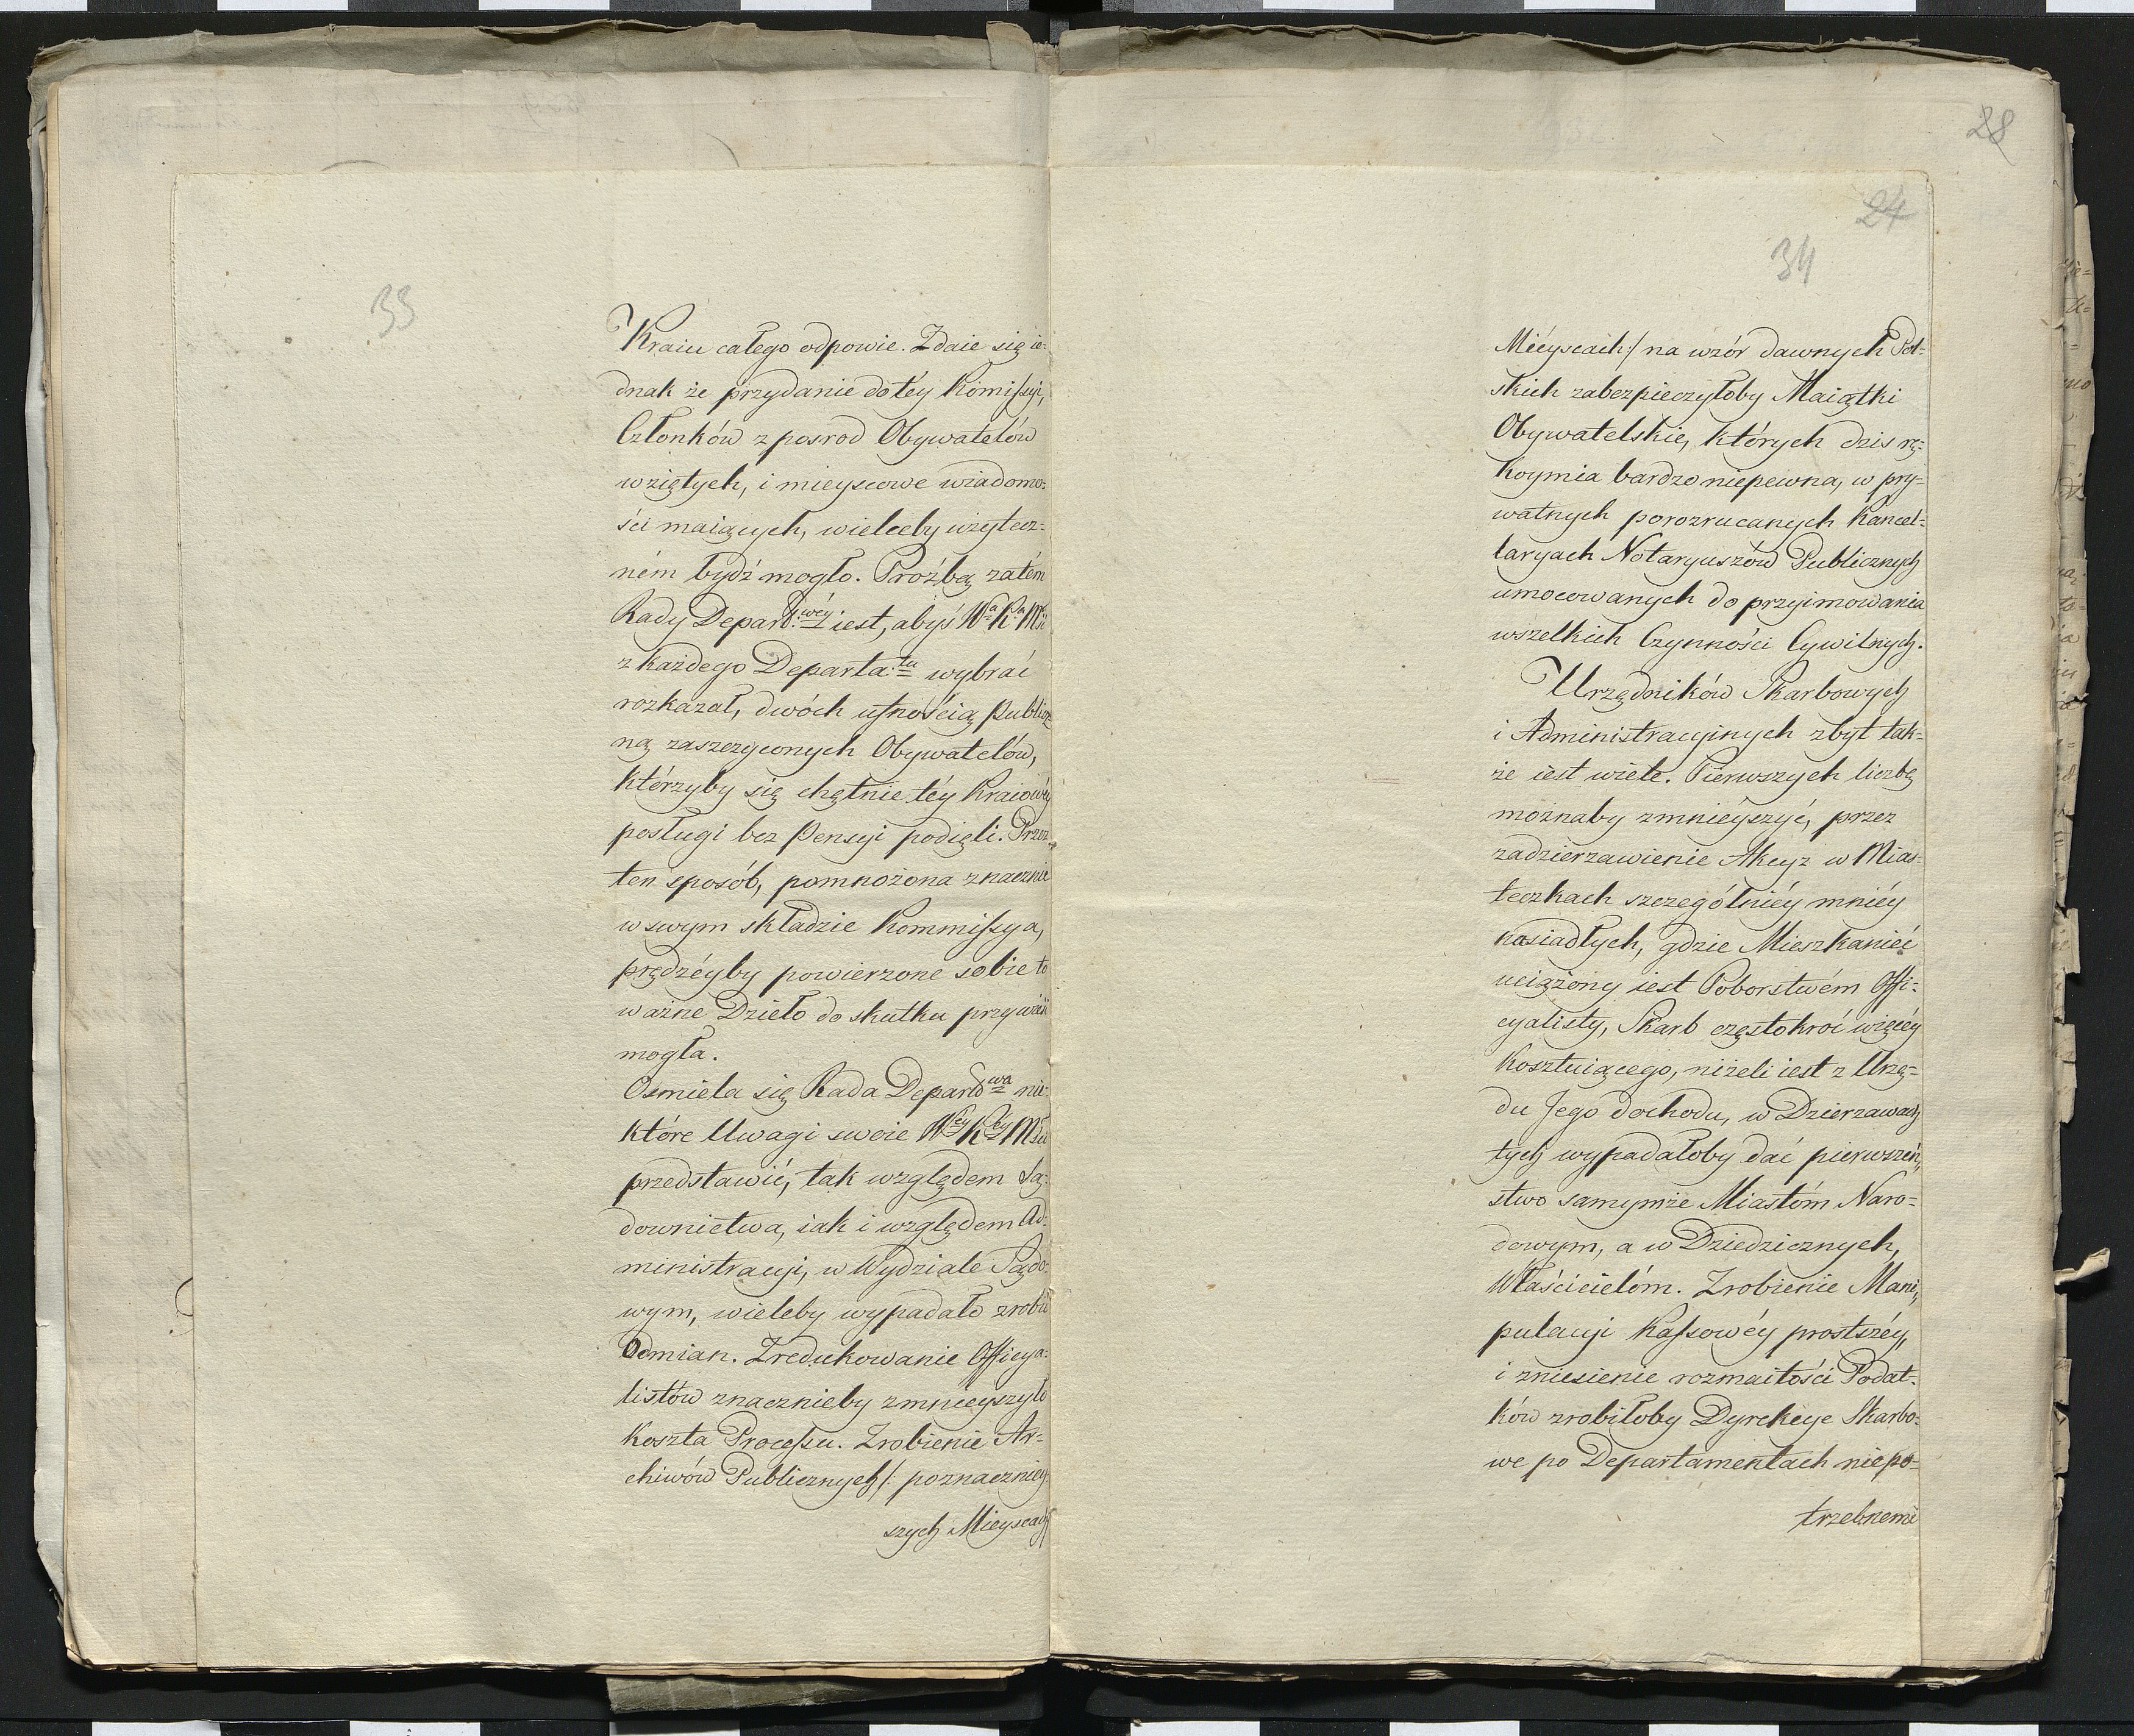 33
Kraiu całego odpowie. Zdaie się ie-
dnak że przydanie do téy Kommissyi,
Członków z posrod Obywatelów
wziętych, i mieyscowe wiadomo-
ści maiących, wieleby użytecz-
ném bydź mogło. Proźbą zatém
Rady Depart:wéy iest, abyś Wa Ka Mść
z każdego Departa:tu wybrać
rozkazał, dwóch ufnością publicz
ną zaszczyconych Obywatelów,
którzyby się chętnie téy Kraiowéy
posługi bez Pensyi podięli. Przez
ten sposób, pomnożona znacznie
w swym składzie Kommissya,
prędzéyby powierzone sobie to
ważne Dzieło do skutku przywieść
mogła.
Osmiela się Rada Departwa nie-
które Uwagi swoie Wéy Kéy Mści
przedstawić, tak względem Są-
downictwa, iak i względem Ad-
ministracyi, w Wydziale Sądo-
wym, wieleby wypadało zrobić
Odmian. Zredukowanie Officya-
listów znacznieby zmnieyszyło
Koszta Processu. Zrobienie Ar-
chiwów Publicznych /: poznaczniey
szych Mieyscach
28
24
34
Mieyscach :/ na wzór dawnych Pol-
skich zabezpieczyłoby Maiątki
Obywatelskie, których dzis rę-
koymia bardzo niepewna, w pry-
watnych porozrucanych Kancel-
laryach Notaryuszów Publicznych
umocowanych do przyimowania
wszelkich Czynności Cywilnych.
Urzędników Skarbowych
i Administracyinych zbyt tak-
że iest wiele. Pierwszych liczbę
możnaby zmnieyszyć, przez
zadzierzawienie Akcyz w Mias-
teczkach szczególniéy mniéy
osiadłych, gdzie Mieszkaniec
uciążony iest Poborstwém Offi-
cyalisty, Skarb częstokroć więcéy
Kosztuiącego, niżeli iest z Urzę-
du Jego dochodu, w Dzierzawach
tych wypadałoby dać pierwszeń-
stwo samymże Miastóm Naro-
dowym, a w Dziedzicznych,
Właścicielóm. Zrobienie Mani-
pulacyi Kassowéy prostszéy,
i zniesienie rozmaitości Podat-
ków zrobiłoby Dyrekcye Skarbo-
we po Departamentach niepo-
trzebnemi